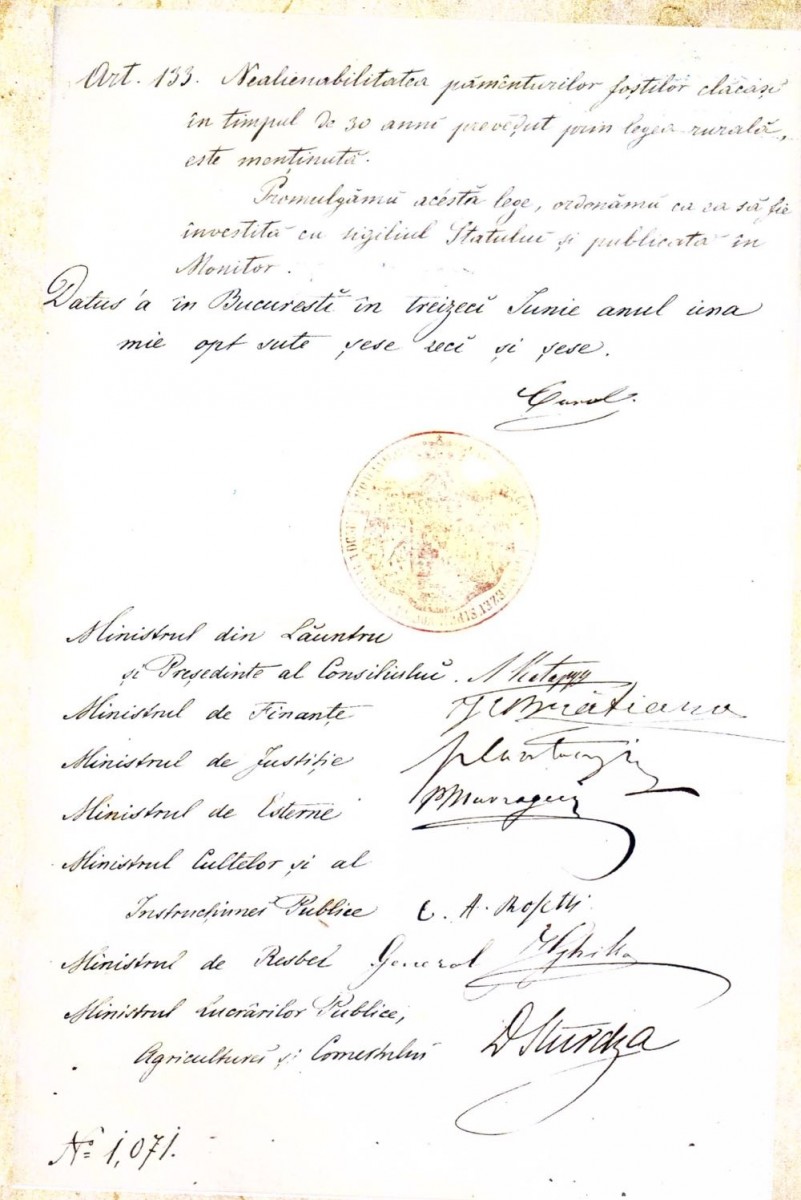 Art. 133. Nealienabilitatea pămênturilor foștilor clăcași
în timpul de 30 anni prevĕḑut prin legea rurală,
este menținută.
Promulgămŭ acéstă lege, ordonămŭ ca ea să fie
învestită cu sigiliul Statuluĭ și publicată în
Monitor.
Datus'a în Bucurestĭ în treizecĭ Iunie anul una
mie opt sute șese ḑecĭ și șese.
Carol.
Ministrul din Lăuntru
și Președinte al Consiliuluĭ.
Ministrul de Finanțe
I C Brătianu
Ministrul de Justiție
Ministrul de Esterne
Ministrul Cultelor și al
Instrucțiuneĭ Publice C. A. Rosetti
Ministrul de Resbel General I Ghika
Ministrul Lucrărilor Publice,
Agricultureĭ și Comerțuluĭ D Sturdza
No 1,071.